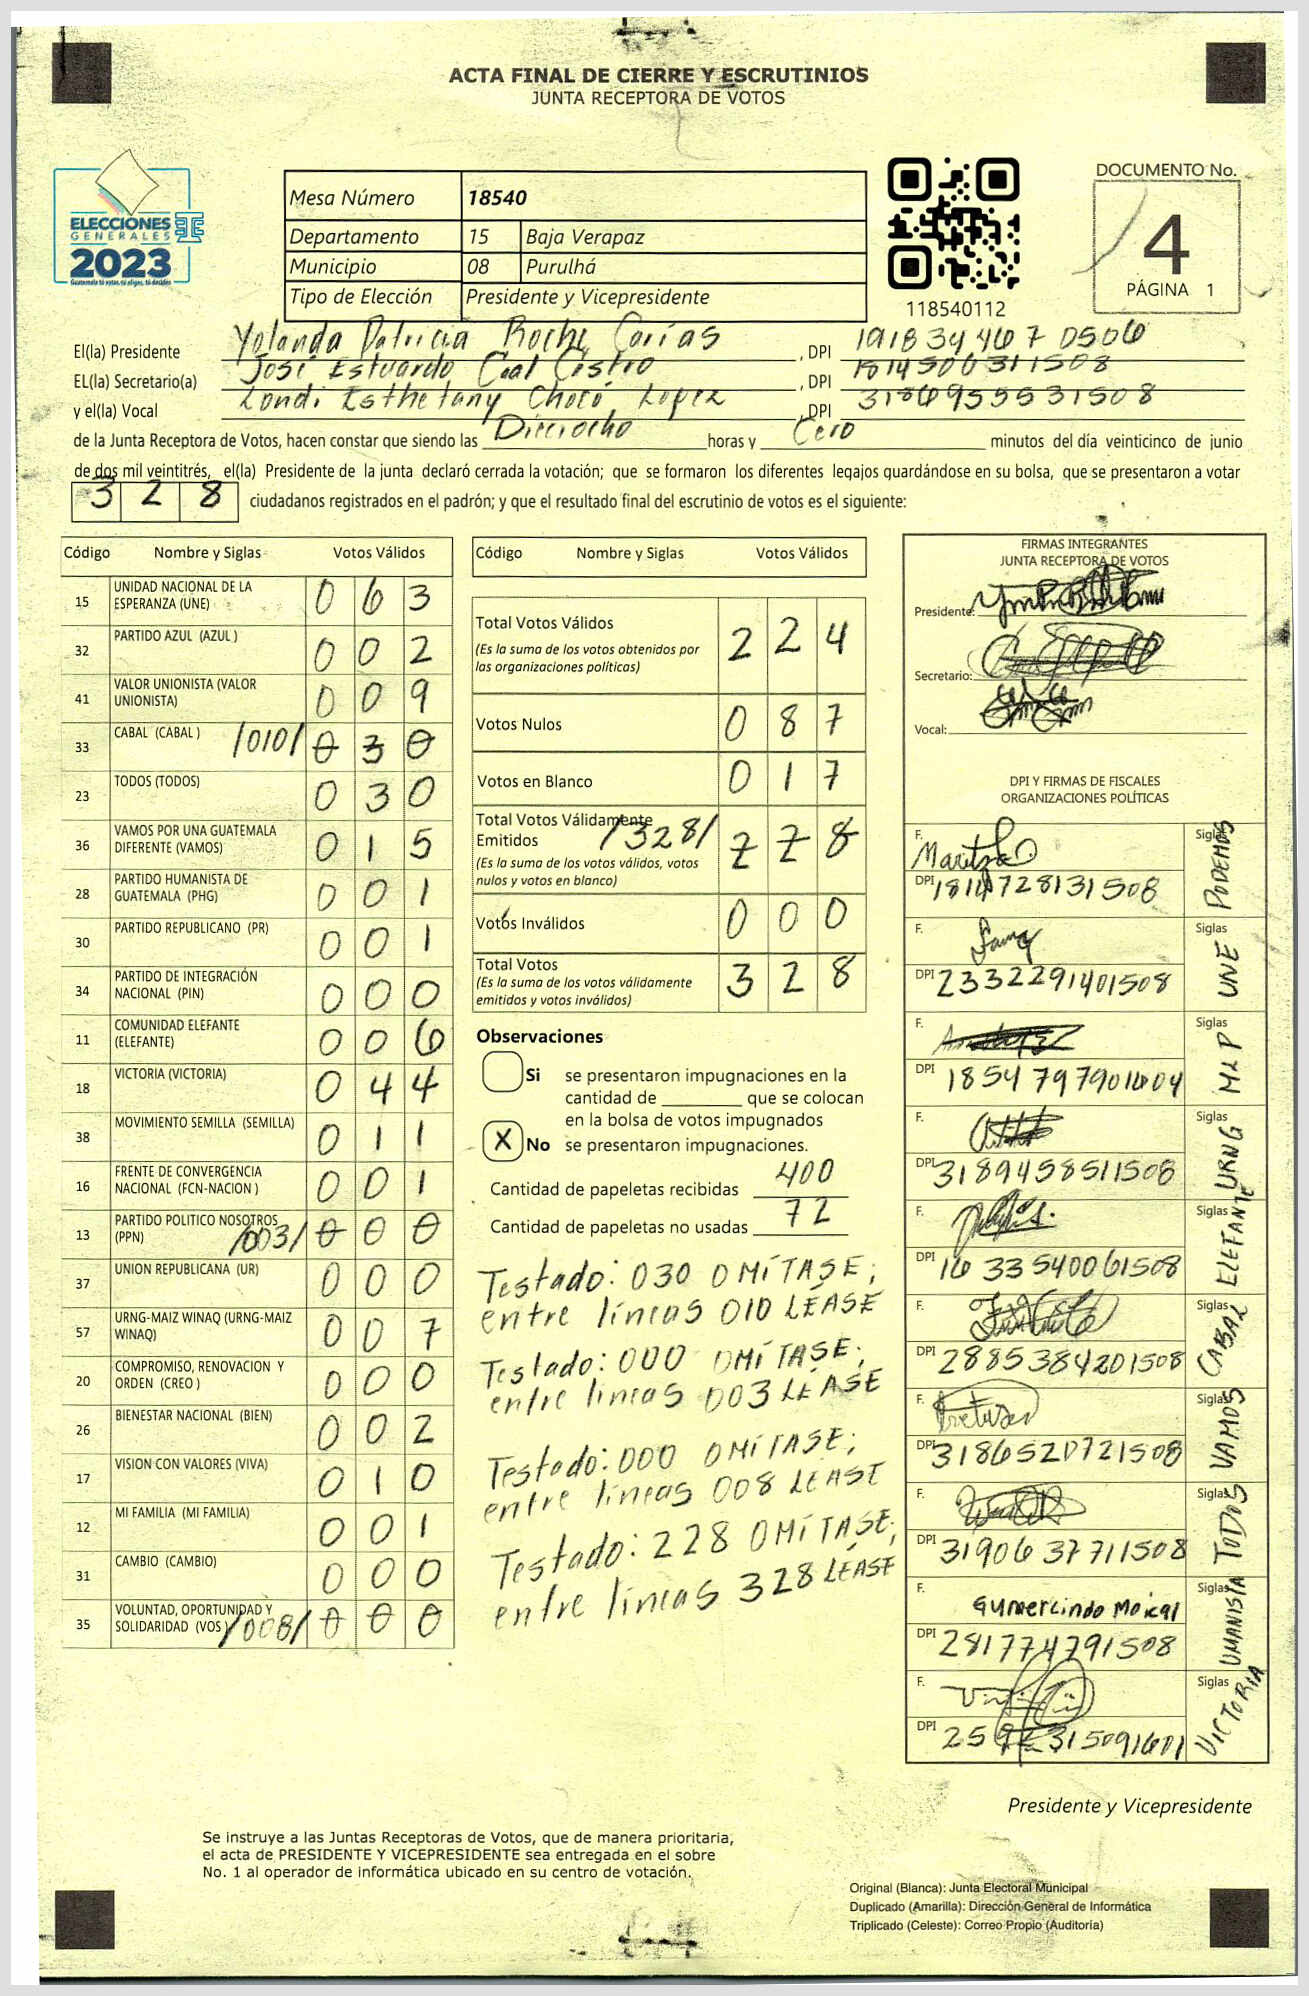 ACTA FINAL DE CIERRE Y ESCRUTINIOS
JUNTA RECEPTORA DE VOTOS
ELECCIONES
GENERALES
2023
Guatemala tú votas, tú eliges, tú decides
Mesa Número 18540
Departamento 15 Baja Verapaz
Municipio 08 Purulhá
Tipo de Elección Presidente y Vicepresidente
118540112
DOCUMENTO No.
4
PÁGINA 1
El(la) Presidente Yolanda Patricia Carías, DPI 191834467 0506
EL(la) Secretario(a) José Estuardo Coal Castro, DPI 1814506311508
y el(la) Vocal Londi Esthefany Chocó López, DPI 3186955531508
de la Junta Receptora de Votos, hacen constar que siendo las Dieciocho horas y Cero minutos del día veinticinco de junio
de dos mil veintitrés, el(la) Presidente de la junta declaró cerrada la votación; que se formaron los diferentes legajos guardándose en su bolsa, que se presentaron a votar
328 ciudadanos registrados en el padrón; y que el resultado final del escrutinio de votos es el siguiente:
Código Nombre y Siglas Votos Válidos
15 UNIDAD NACIONAL DE LA ESPERANZA (UNE) 0 6 3
32 PARTIDO AZUL (AZUL ) 0 0 2
41 VALOR UNIONISTA (VALOR UNIONISTA) 0 0 9
33 CABAL (CABAL ) /010/ 0 3 0
23 TODOS (TODOS) 0 3 0
36 VAMOS POR UNA GUATEMALA DIFERENTE (VAMOS) 0 1 5
28 PARTIDO HUMANISTA DE GUATEMALA (PHG) 0 0 1
30 PARTIDO REPUBLICANO (PR) 0 0 1
34 PARTIDO DE INTEGRACIÓN NACIONAL (PIN) 0 0 0
11 COMUNIDAD ELEFANTE (ELEFANTE) 0 0 6
18 VICTORIA (VICTORIA) 0 4 4
38 MOVIMIENTO SEMILLA (SEMILLA) 0 1 1
16 FRENTE DE CONVERGENCIA NACIONAL (FCN-NACION ) 0 0 1
13 PARTIDO POLITICO NOSOTROS (PPN) /003/ 0 0 0
37 UNION REPUBLICANA (UR) 0 0 0
57 URNG-MAIZ WINAQ (URNG-MAIZ WINAQ) 0 0 7
20 COMPROMISO, RENOVACION Y ORDEN (CREO ) 0 0 0
26 BIENESTAR NACIONAL (BIEN) 0 0 2
17 VISION CON VALORES (VIVA) 0 1 0
12 MI FAMILIA (MI FAMILIA) 0 0 1
31 CAMBIO (CAMBIO) 0 0 0
35 VOLUNTAD, OPORTUNIDAD Y SOLIDARIDAD (VOS) /008/ 0 0 0
Código Nombre y Siglas Votos Válidos
Total Votos Válidos 2 2 4
(Es la suma de los votos obtenidos por
las organizaciones políticas)
Votos Nulos 0 8 7
Votos en Blanco 0 1 7
Total Votos Válidamente
Emitidos /328/ 2 2 8
(Es la suma de los votos válidos, votos
nulos y votos en blanco)
Votos Inválidos 0 0 0
Total Votos 3 2 8
(Es la suma de los votos válidamente
emitidos y votos inválidos)
Observaciones
Si se presentaron impugnaciones en la
cantidad de ________ que se colocan
en la bolsa de votos impugnados
X No se presentaron impugnaciones.
Cantidad de papeletas recibidas 400
Cantidad de papeletas no usadas 72
Testado: 030 OMÍTASE;
entre líneas 010 LÉASE
Testado: 000 OMÍTASE;
entre líneas 003 LÉASE
Testado: 000 OMÍTASE;
entre líneas 008 LÉASE
Testado: 228 OMÍTASE;
entre líneas 328 LÉASE
FIRMAS INTEGRANTES
JUNTA RECEPTORA DE VOTOS
Presidente:
Secretario:
Vocal:
DPI Y FIRMAS DE FISCALES
ORGANIZACIONES POLÍTICAS
F. Maritza Siglas PODEMOS
DPI 728131508
F. Siglas UNE
DPI 2332291401508
F. Siglas MLP
DPI 1854797901604
F. Siglas URNG
DPI 3189458511508
F. Siglas ELEFANTE
DPI 1633540061508
F. Siglas CABAL
DPI 2885384201508
F. Siglas VAMOS
DPI 3186520721508
F. Siglas TODOS
DPI 3190637711508
F. Gumercindo Moical Siglas UMANISTA
DPI 281774791508
F. Siglas VICTORIA
DPI
Presidente y Vicepresidente
Se instruye a las Juntas Receptoras de Votos, que de manera prioritaria,
el acta de PRESIDENTE Y VICEPRESIDENTE sea entregada en el sobre
No. 1 al operador de informática ubicado en su centro de votación.
Original (Blanca): Junta Electoral Municipal
Duplicado (Amarilla): Dirección General de Informática
Triplicado (Celeste): Correo Propio (Auditoría)